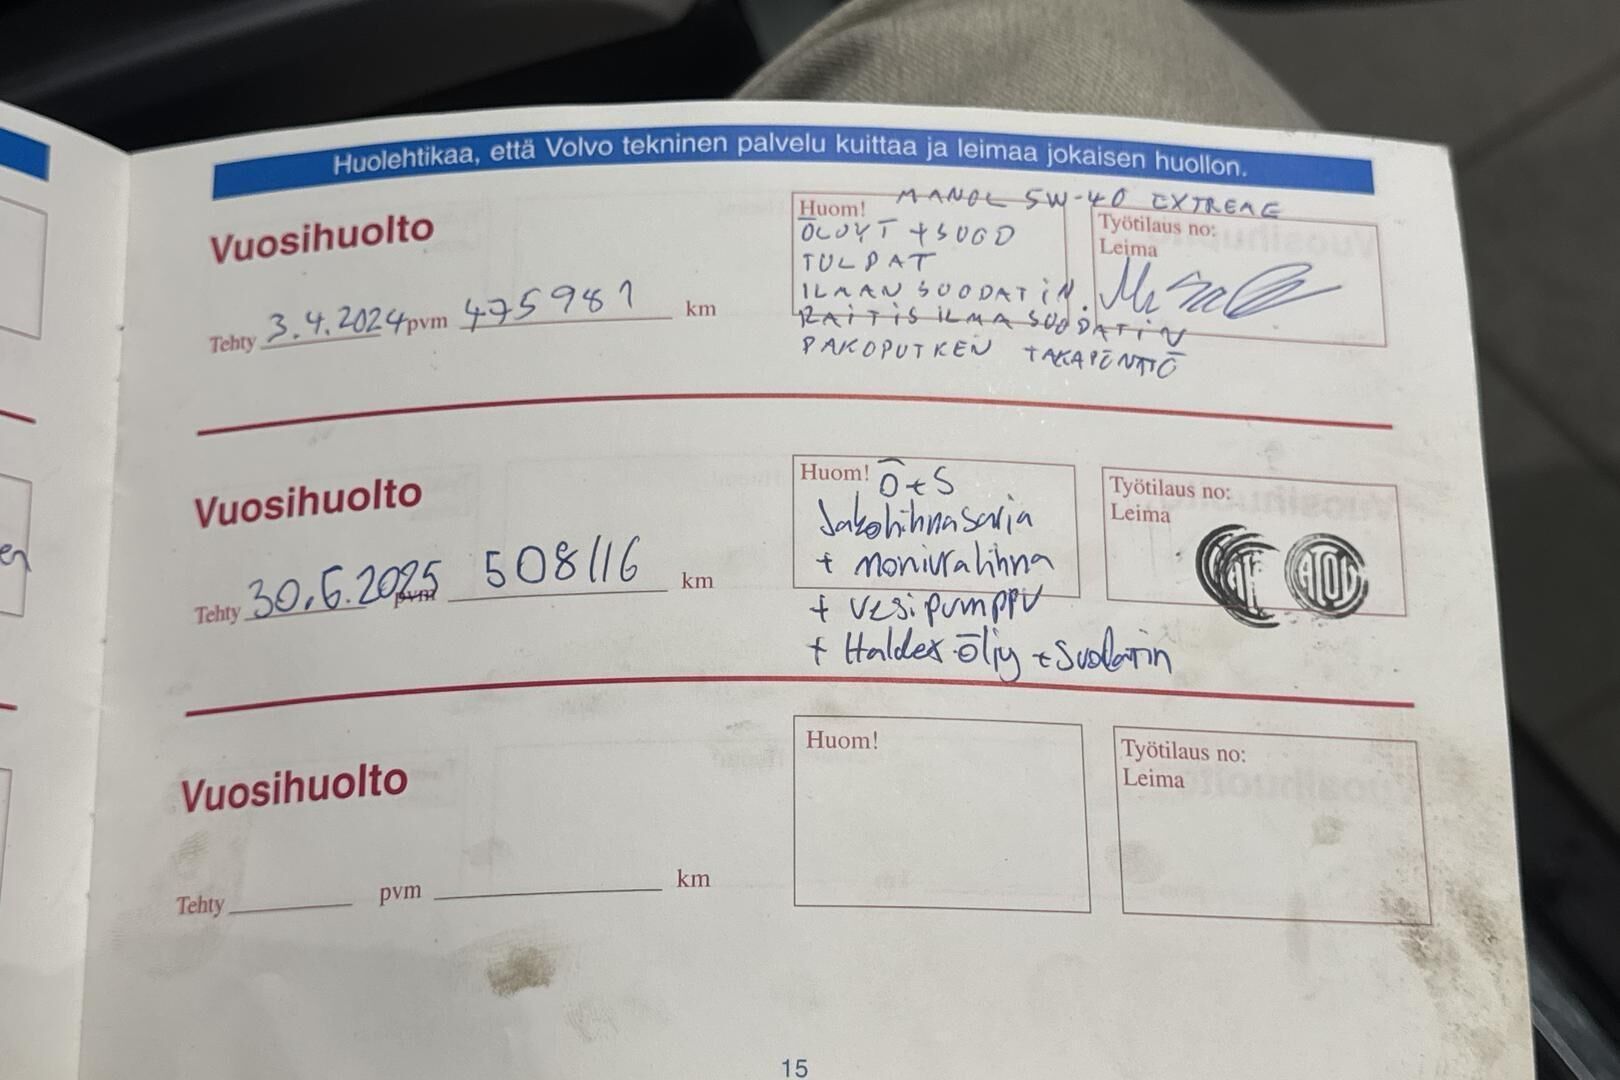 Huolehtikaa, että Volvo tekninen palvelu kuittaa ja leimaa jokaisen huollon.
Vuosihuolto
Tehty 3.4.2024 pvm 475981 km
MANOL 5W-40 EXTREME
Huom!
ÖLJYT + SUOD
TULPAT
ILMAN SUODATIN.
RAITIS ILMA SUODATIN
PAKOPUTKEN TAKAPÖNTTÖ
Työtilaus no:
Leima
Vuosihuolto
Tehty 30.6.2025 pvm 508116 km
Huom! Ö+S
Jakohihnasarja
+ moniurahihna
+ vesipumppu
+ Haldex öljy + suodatin
Työtilaus no:
Leima
Vuosihuolto
Tehty pvm km
Huom!
Työtilaus no:
Leima
15